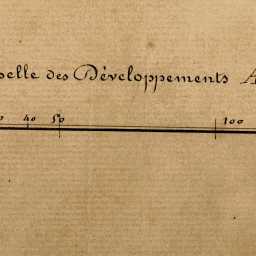 elle des Développements A
40 50 100